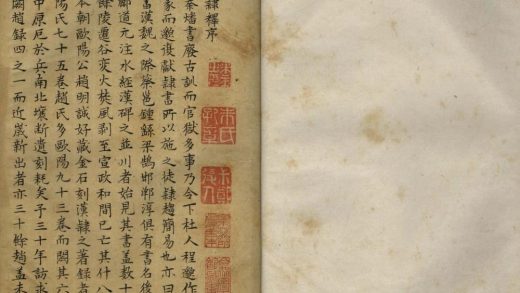 隸釋序
秦燔書廢古訓而官獄多事乃令下杜人程邈作
篆而邈復獻隸書所以施之徒隸趨簡易也亦曰
書漢魏之際蔡邕鍾繇梁鵠邯鄲淳俱有書名後
酈道元注水經漢碑之並川者始見其書蓋數十
餘陵遷谷變火焚風剥至宣政和間已亡其什八
本朝歐陽公趙明誠好藏金石刻漢隸之著録者
陽氏七十五卷趙氏多歐陽九十三卷而闕其六
中原厄於兵南北壤斷遺刻耗矣予三十年訪求
闕趙録四之一而近歲新出者亦三十餘趙蓋未